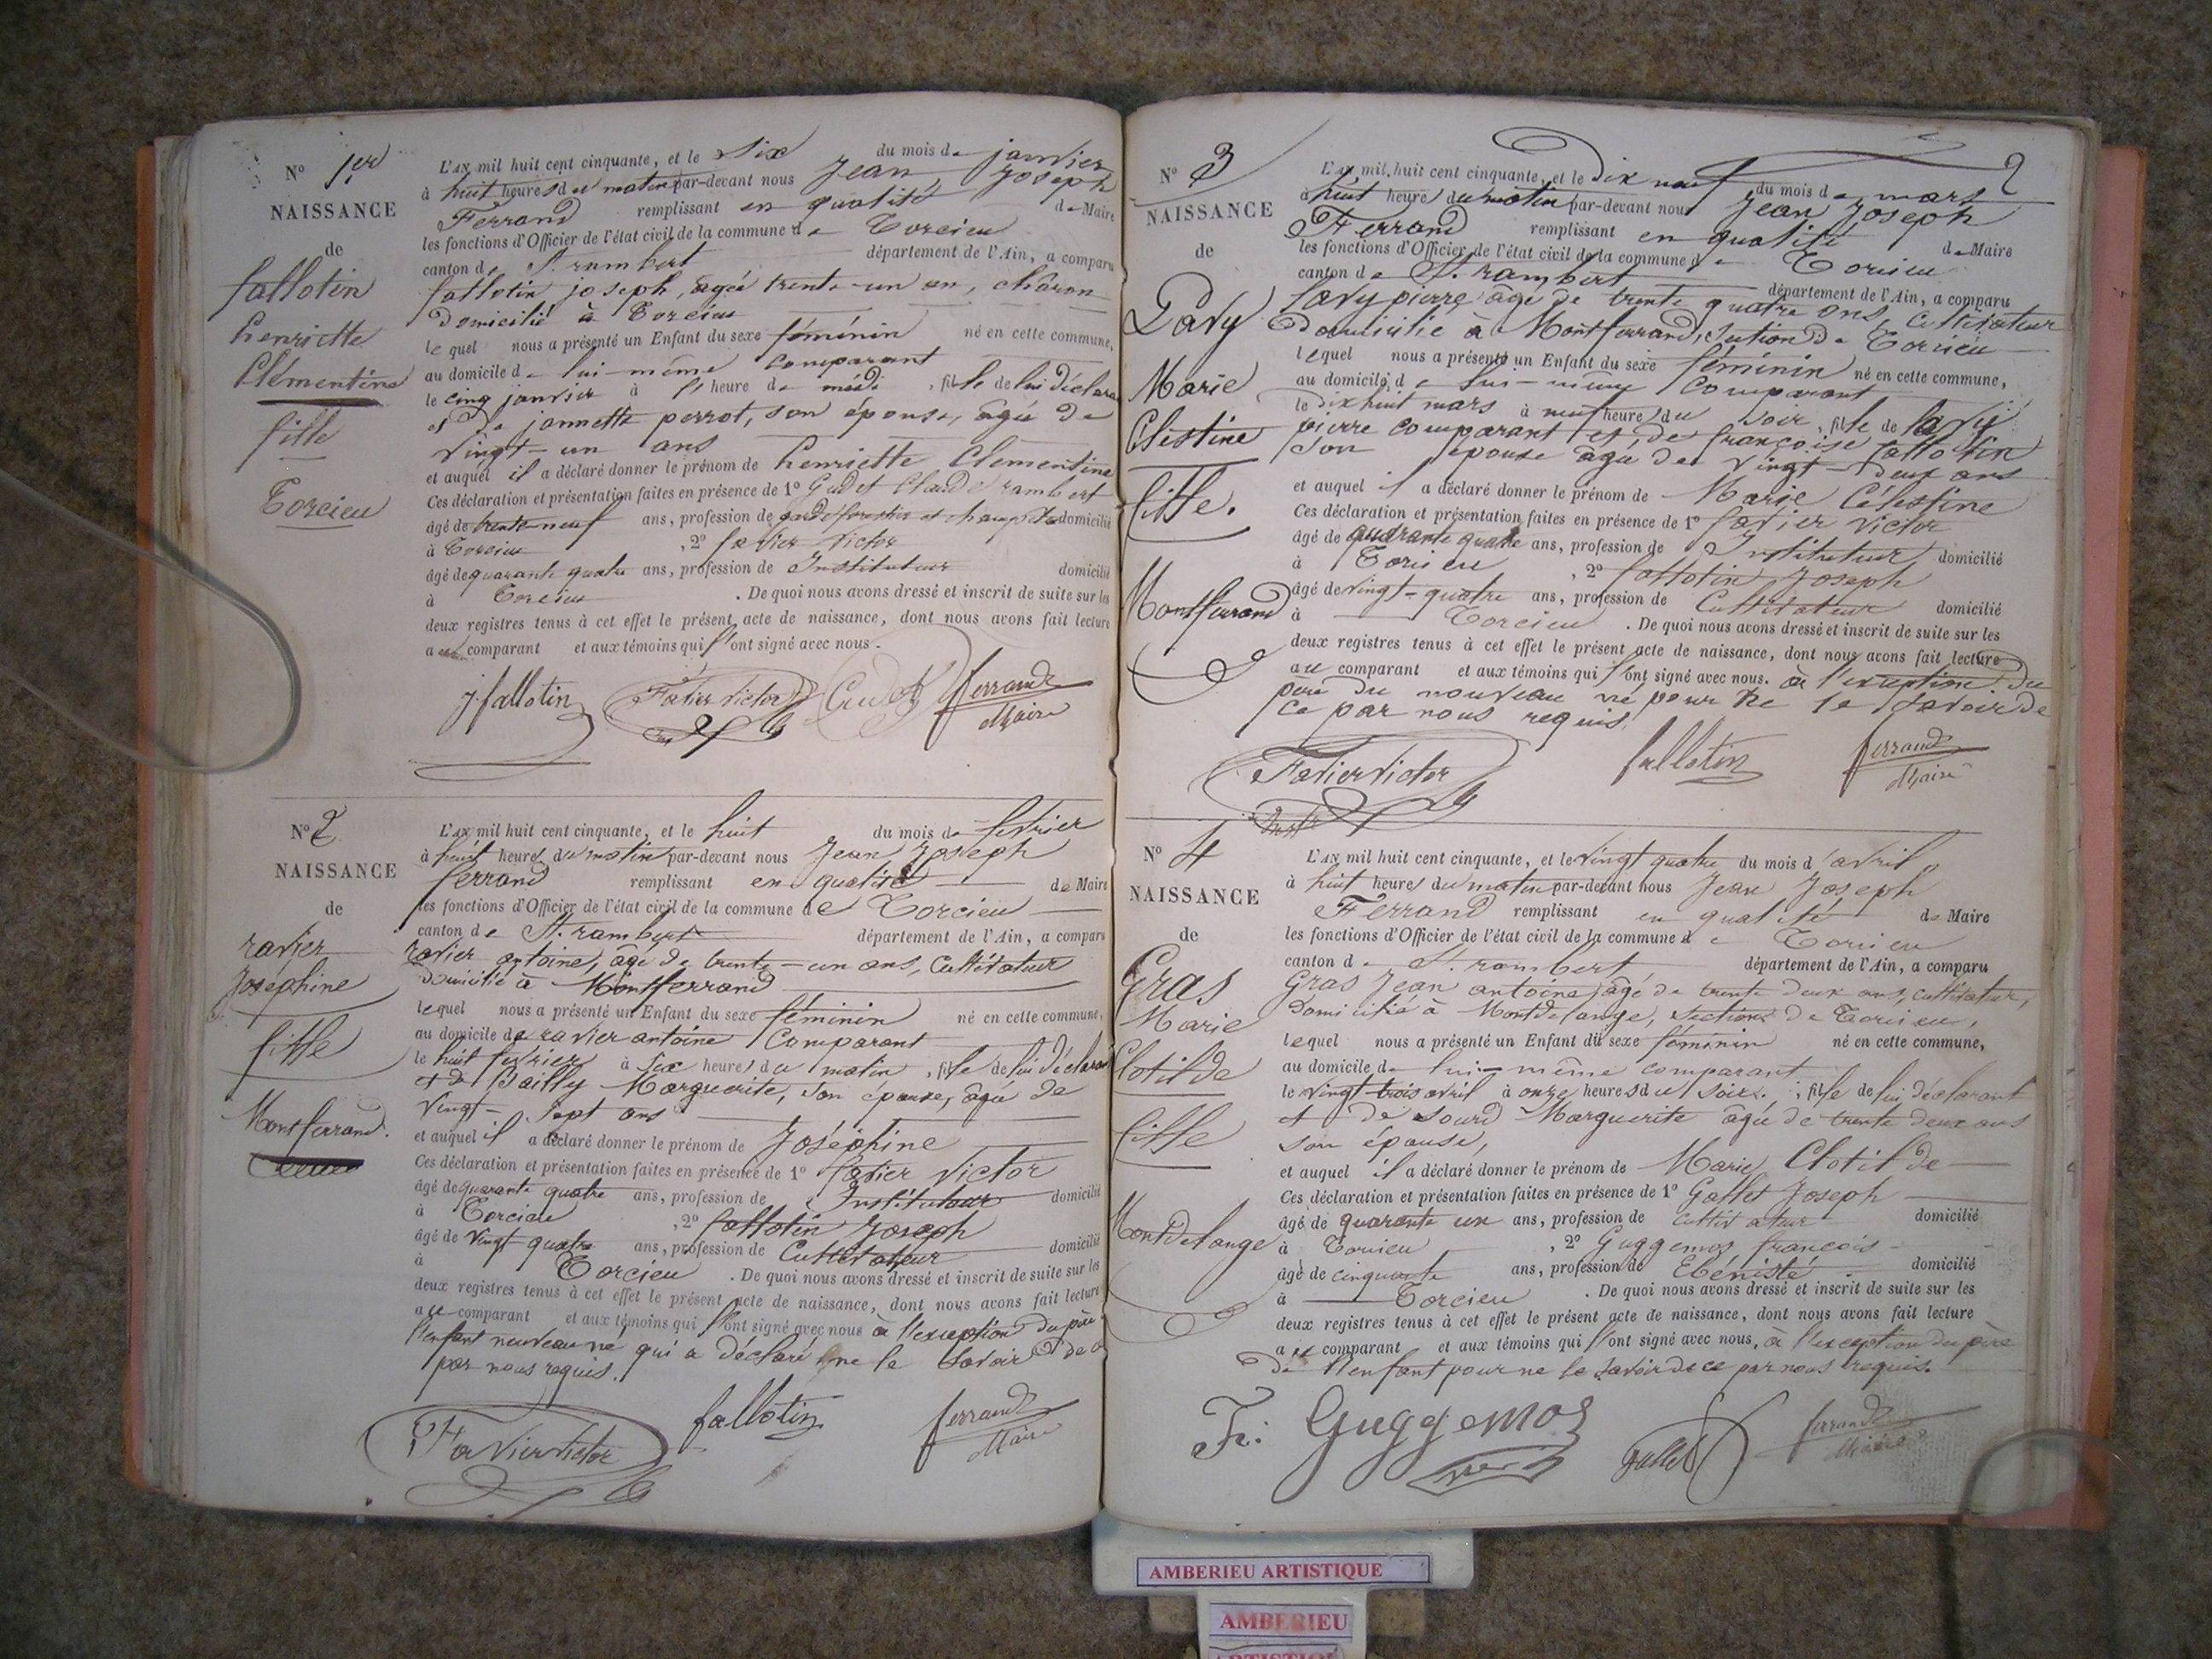 N° 1er
NAISSANCE
de
fallotin
henriette
Clémentine
fille
Torcieu
L'AN mil huit cent cinquante, et le six du mois de janvier
à huit heures du matin par-devant nous Jean Joseph
Ferrand remplissant en qualité de Maire
les fonctions d'Officier de l'état civil de la commune de Torcieu
canton de St. rambert département de l'Ain, a comparu
fallotin joseph, agée trente-un an, charon
domicilié à Torcieu
lequel nous a présenté un Enfant du sexe féminin né en cette commune,
au domicile de lui-même comparant
le cinq janvier à l' heure de midi , fille de lui déclarant
et de jannette perrot, son épouse, agée de
vingt-un ans
et auquel il a déclaré donner le prénom de henriette Clementine
Ces déclaration et présentation faites en présence de 1° Gudet Claude rambert
âgé de trente-neuf ans, profession de garde forestier et champêtre domicilié
à Torcieu , 2° favier victor
âgé de quarante quatre ans, profession de Instituteur domicilié
à Torcieu . De quoi nous avons dressé et inscrit de suite sur les
deux registres tenus à cet effet le présent acte de naissance, dont nous avons fait lecture
au comparant et aux témoins qui l'ont signé avec nous.
j fallotin Favier Victor Gudet ferrand
Maire
N° 2
NAISSANCE
de
ravier
Joséphine
fille
Montferrand.
L'AN mil huit cent cinquante, et le huit du mois de fevrier
à huit heures du matin par-devant nous Jean Joseph
ferrand remplissant en qualité de Maire
les fonctions d'Officier de l'état civil de la commune de Torcieu
canton de St. rambert département de l'Ain, a comparu
ravier antoine, âgé de trente-un ans, Cultivateur
domicilié à Montferrand
lequel nous a présenté un Enfant du sexe féminin né en cette commune,
au domicile de ravier antoine Comparant
le huit fevrier à six heures du matin , fille de lui déclarant
et de Bailly Marguerite, son épouse, agée de
vingt-sept ans
et auquel il a déclaré donner le prénom de Joséphine
Ces déclaration et présentation faites en présence de 1° favier Victor
âgé de quarante quatre ans, profession de Instituteur domicilié
à Torcieu , 2° fallotin Joseph
âgé de vingt-quatre ans, profession de Cultivateur domicilié
à Torcieu . De quoi nous avons dressé et inscrit de suite sur les
deux registres tenus à cet effet le présent acte de naissance, dont nous avons fait lecture
au comparant et aux témoins qui l'ont signé avec nous à l'exception du père
l'enfant nouveau né qui a déclaré ne le savoir de ce
par nous requis.
Favier Victor fallotin ferrand
Maire
2
N° 3
NAISSANCE
de
Lavy
Marie
Célestine
fille.
Montferrand
L'AN mil huit cent cinquante, et le dix neuf du mois de mars
à huit heures du matin par-devant nous Jean Joseph
Ferrand remplissant en qualité de Maire
les fonctions d'Officier de l'état civil de la commune de Torcieu
canton de St. rambert département de l'Ain, a comparu
Lavy pierre âgé de trente quatre ans, Cultivateur
domicilié à Montferrand, section de Torcieu
lequel nous a présenté un Enfant du sexe féminin né en cette commune,
au domicile de lui-même Comparant
le dix huit mars à neuf heures du soir , fille de lavy
pierre comparant et de françoise fallotin
son épouse agée de vingt-deux ans
et auquel il a déclaré donner le prénom de Marie Célestine
Ces déclaration et présentation faites en présence de 1° favier Victor
âgé de quarante quatre ans, profession de Instituteur domicilié
à Torcieu , 2° fallotin Joseph
âgé de vingt-quatre ans, profession de Cultivateur domicilié
à Torcieu . De quoi nous avons dressé et inscrit de suite sur les
deux registres tenus à cet effet le présent acte de naissance, dont nous avons fait lecture
au comparant et aux témoins qui l'ont signé avec nous. à l'exception du
père du nouveau né pour ne le savoir de
ce par nous requis.
Favier Victor fallotin ferrand
Instr Maire
N° 4
NAISSANCE
de
Gras
Marie
Clotilde
fille
Montdelange
L'AN mil huit cent cinquante, et le vingt quatre du mois d'avril
à huit heures du matin par-devant nous Jean Joseph
Ferrand remplissant en qualité de Maire
les fonctions d'Officier de l'état civil de la commune de Torcieu
canton de St. rambert département de l'Ain, a comparu
Gras Jean antoine, agé de trente deux ans, cultivateur,
domicilié à Montdelange, section de Torcieu,
lequel nous a présenté un Enfant du sexe féminin né en cette commune,
au domicile de lui-même comparant
le vingt-trois avril à onze heures du soir. , fille de lui déclarant
et de sourd Marguerite âgée de trente deux ans
son épouse,
et auquel il a déclaré donner le prénom de Marie Clotilde
Ces déclaration et présentation faites en présence de 1° Gallet Joseph
âgé de quarante un ans, profession de Cultivateur domicilié
à Torcieu , 2° Guggemos françois
âgé de cinquante ans, profession de Ebéniste domicilié
à Torcieu . De quoi nous avons dressé et inscrit de suite sur les
deux registres tenus à cet effet le présent acte de naissance, dont nous avons fait lecture
au comparant et aux témoins qui l'ont signé avec nous, à l'exception du père
de l'enfant pour ne le savoir de ce par nous requis.
Fr: Guggemos Gallet ferrand
Maire
AMBERIEU ARTISTIQUE
AMBERIEU
ARTISTIQUE